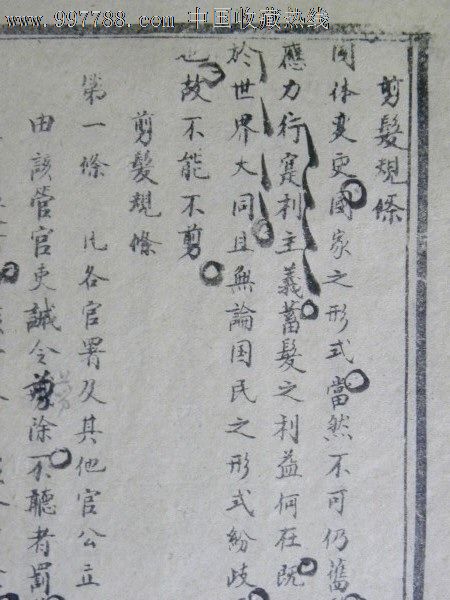 www.997788.com 中国收藏热线
剪髮規條
国体变更國家之形式當然不可仍舊
應力行寔利主義蓄髮之利益何在既
於世界大同且無論国民之形式紛歧
也故不能不剪
剪髮規條
第一條 凡各官署及其他官公立
由該管官吏誡令剪除不聽者罰
剪